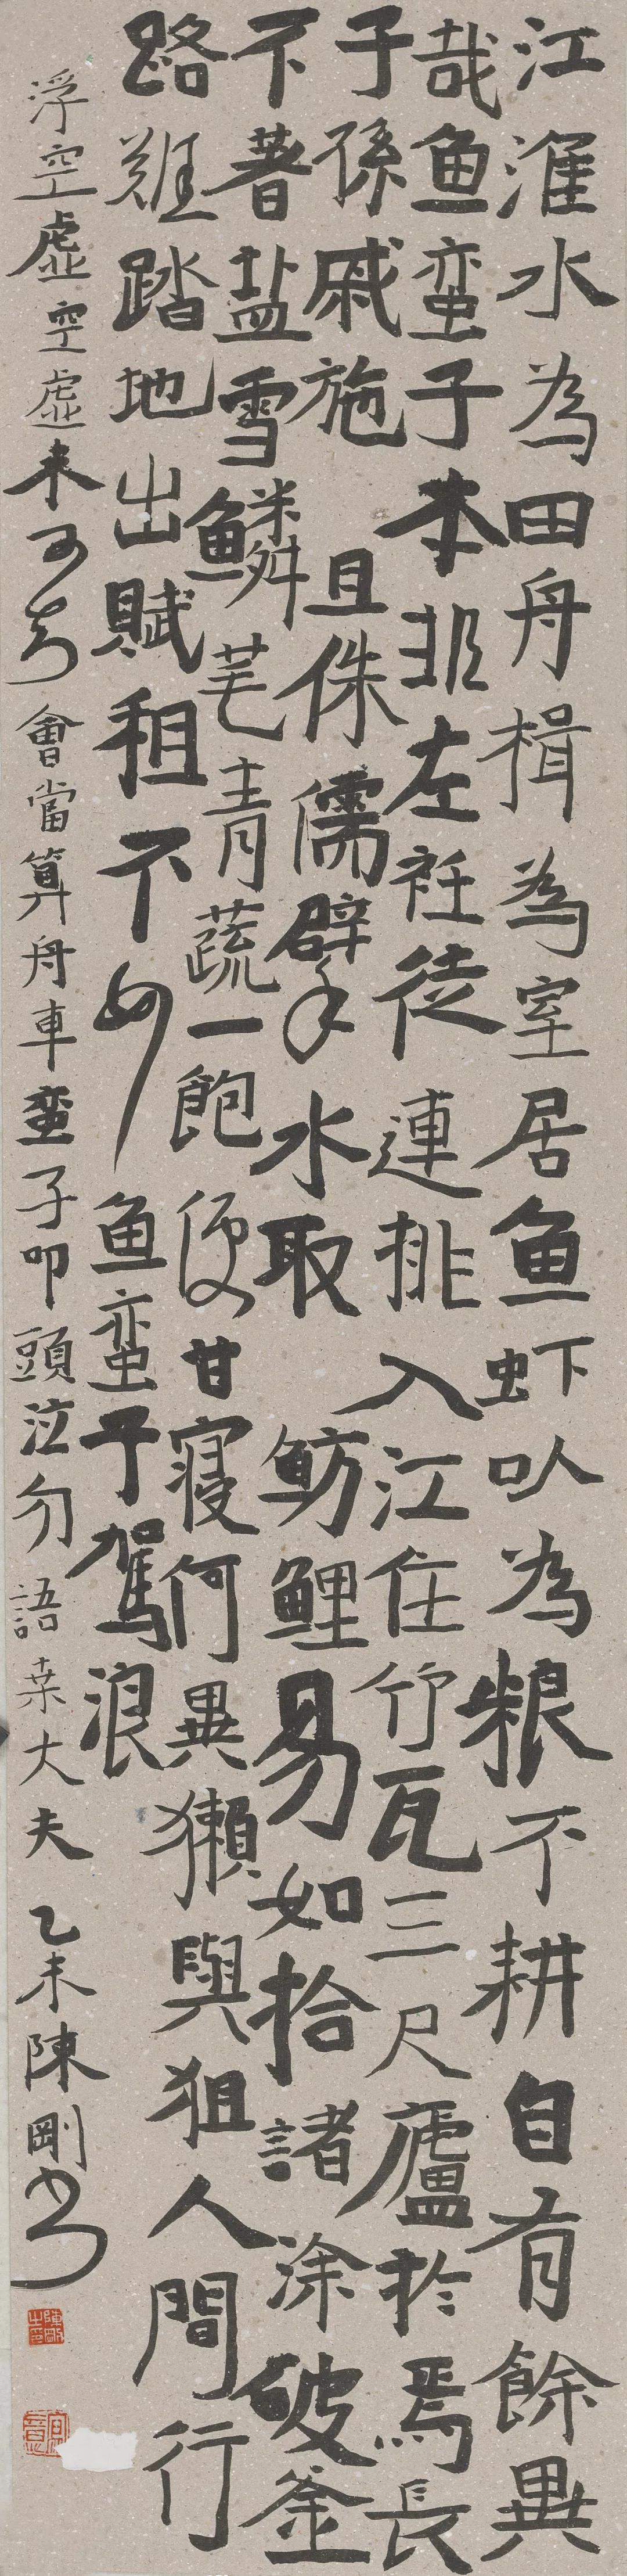 江淮水為田舟楫為室居鱼虾以為粮不耕自有餘異
哉鱼蛮子本非左衽徒連排入江住竹瓦三尺廬於焉長
子孫戚施且侏儒擘水取鲂鲤易如拾諸涂破釜
不著盐雪鳞芼青蔬一飽便甘寝何異獺與狙人間行
路難踏地出賦租不如鱼蛮子駕浪
浮空虛空虛未可知會當算舟車蛮子叩頭泣勿語桒大夫乙未陳剛书